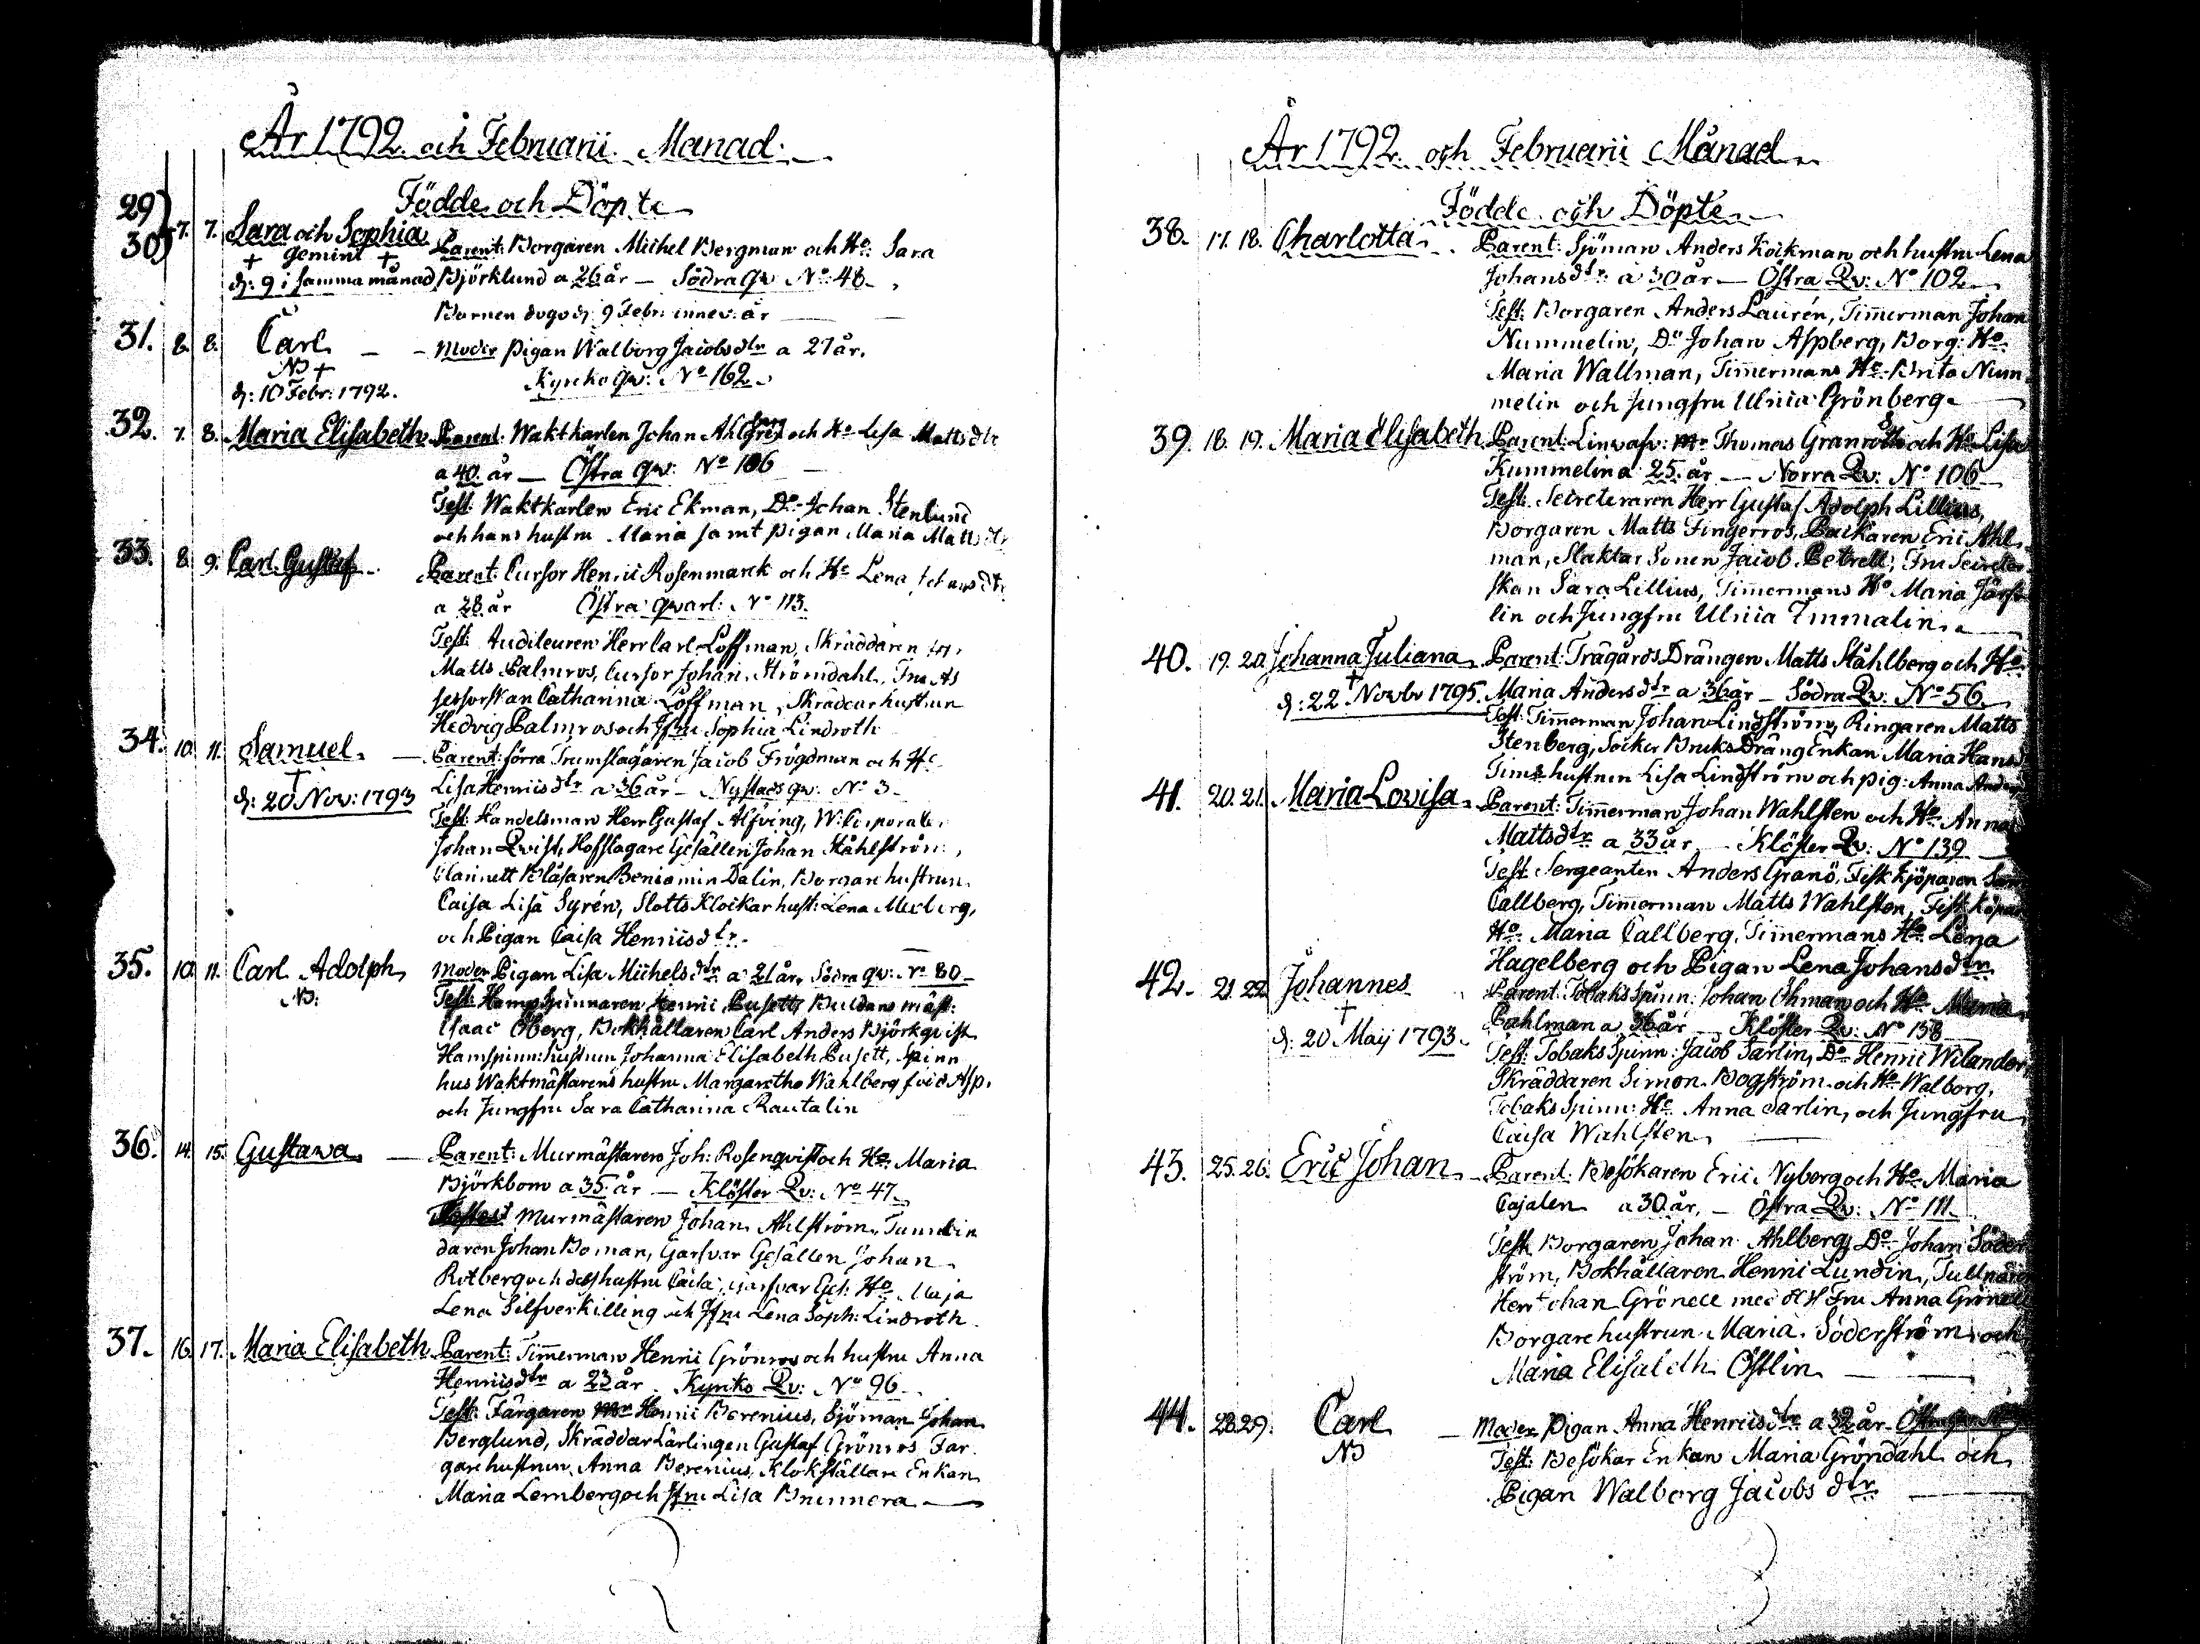 År 1792. och Februarii Månad.
Födde och Döpte
29 30 7. 7. Sara och Sophia Parent: Borgaren Michel Bergman och Ho: Sara
+ gemini +
d: 9 i samma månad Björklund a 26 år — Södra qv No: 48.
Barnen dogo d: 9 Febr: innev: år
31. 8. 8. Carl — Moder pigan Walborg Jacobs dtr a 27 år.
NB +
Kyrcko qv: No 162.
d: 10 Febr: 1792.
32. 7. 8. Maria Elisabeth Parent: Waktkarlen Johan och Ho Lisa Matts dtr
a 40 år — Östra qv: No 106
Test: Waktkarlen Eric Ekman, Do Johan Stenlund
och hans hustru Maria samt pigan Maria Matts dtr
33. 8. 9. Carl Gustaf Parent: Cursor Henric Rosenmarck och Ho Lena Johans dtr
a 28 år Östra qvart: No 113.
Test: Auditeuren Herr Carl Loffman, Skräddaren
Matts Palmros, Cursor Johan Strömdahl, Fru As
sessorskan Catharina Loffman, Skräddar hustrun
Hedvig Palmros och Jfru Sophia Lindroth
34. 10. 11. Samuel. — Parent: förra Trumslagaren Jacob Frögdman och Ho
+
Lisa Henrics dtr a 36 år — Nystads qv: No 3.
d: 20 Nov: 1793
Test: Handelsman Herr Gustaf Alfving, W: Corporalen
Johan Qvist, Hofslagare Gesällen Johan Ståhlström,
Clarinett Blåsaren Beniamin Dalin, Borgare hustrun
Caisa Lisa Syrén, Slotts Klockar hust: Lena
och Pigan Caisa Henrics dtr.
35. 10. 11. Carl Adolph Moder Pigan Lisa Michels dtr a 21 år, Södra qv: No 80
NB:
Test: Hampspinnaren Henric Busett, Buldans mäst:
Isaac Öberg, Bokhållaren Carl Anders Björkqvist
Hampspinn: hustrun Johanna Elisabeth Busett, Spinn
hus Waktmästarens hustru Margaretha Wahlberg född Asp.
och Jungfru Sara Catharina Rautalin
36. 14. 15. Gustava — Parent: Murmästaren Joh: Rosenqvist och Ho. Maria
Björkbom a 35 år — Klöster Qv: No 47.
Murmästaren Johan Ahlström, Tunnbin
daren Johan Boman, Garfvar Gesällen Johan
Rotberg och dess hustru Caisa, Garfvar Ges: Ho Maja
Lena Silfverkilling och Jfru Lena Soph: Lindroth.
37. 16. 17. Maria Elisabeth Parent: Timmerman Henric Grönros och hustru Anna
Henrics dtr a 23 år. Kyrcko Qv: No 96.
Test: Färgaren Mr Henric Berenius, Sjöman Johan
Berglund, Skräddar Lärlingen Gustaf Grönros, Fär
gare hustrun Anna Berenius, Klokställare Enkan
Maria Lernberg och Jfru Lisa Brunnera —
År 1792. och Februarii Månad.
Födde och Döpte
38. 17. 18. Charlotta. Parent: Sjöman Anders Kockman och hustru Lena
Johans dtr: a 30 år — Östra Qv: No 102.
Test: Borgaren Anders Laurén, Timmerman Johan
Nummelin, Do Johan Aspberg, Borg: Ho.
Maria Wallman, Timmermans Ho. Brita Num
melin och Jungfru Ulrica Grönberg.
39. 18. 19. Maria Elisabeth. Parent: Linväfv: Mr Thomas Granroth och Ho Lisa
Kummelin a 25 år — Norra Qv: No 106
Test: Secreteraren Herr Gustaf Adolph Lillius,
Borgaren Matts Fingerros, Backaren Eric Ahl
man, Slaktar Sonen Jacob Petrell, Fru Secreter
skan Sara Lillius, Timmermans Ho Maria
lin och Jungfru Ulrica Emmalin.
40. 19. 20. Johanna Juliana. Parent: Trägårds Drängen Matts Ståhlberg och Ho.
+
d: 22 Novbr 1795. Maria Anders dtr a 36 år — Södra Qv: No 56.
Test: Timmerman Johan Lindström, Ringaren Matts
Stenberg, Socker Bruks Dräng Enkan Maria Hans
Tim: hustrun Lisa Lindström och pig: Anna Anders
41. 20. 21. Maria Lovisa. Parent: Timmerman Johan Wahlsten och Ho. Anna
Matts dtr a 33 år — Klöster Qv: No 139
Test: Sergeanten Anders Granö, Fisk Kjöparen
Callberg, Timmerman Matts Wahlsten, Fisk Köpar
Ho. Maria Callberg, Timmermans Ho. Lena
Hagelberg och Pigan Lena Johans dtr.
42. 21. 22. Johannes Parent: Tobaks Spinn: Johan Öhman och Ho Maria
+
Pahlman a 36 år — Klöster Qv: No 158
d: 20 Maij 1793.
Test: Tobaks Spinn: Jacob Sarlin, Do Henric Wilander,
Skräddaren Simon Bogström och Ho Walborg,
Tobaks Spinn: Ho Anna Sarlin, och Jungfru
Caisa Wahlsten.
43. 25. 26. Eric Johan — Parent: Besökaren Eric Nyberg och Ho Maria
Cajalen a 30 år, — Östra Qv: No 111.
Test: Borgaren Johan Ahlberg, Do Johan Söder
ström, Bokhållaren Henric Lundin, Tullnären
Herr Johan Grönell med Fru Anna Grönell
Borgare hustrun Maria Söderström och
Maria Elisabeth Östlin —
44. 28. 29. Carl — Moder Pigan Anna Henrics dtr a 32 år.
NB
Test: Besökar Enkan Maria Gröndahl och
Pigan Walborg Jacobs dtr. —